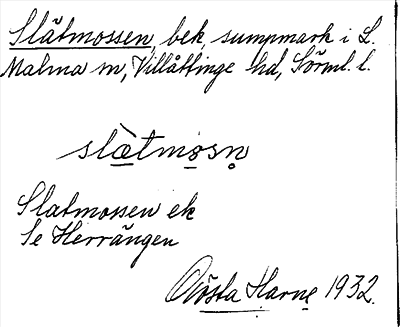 Slätmossen, bek, sumpmark i L.
Malma sn, Villåttinge hd, Sörml. l.
slätmosn̥
Slatmossen ek
Se Herrängen
Harne 1932.